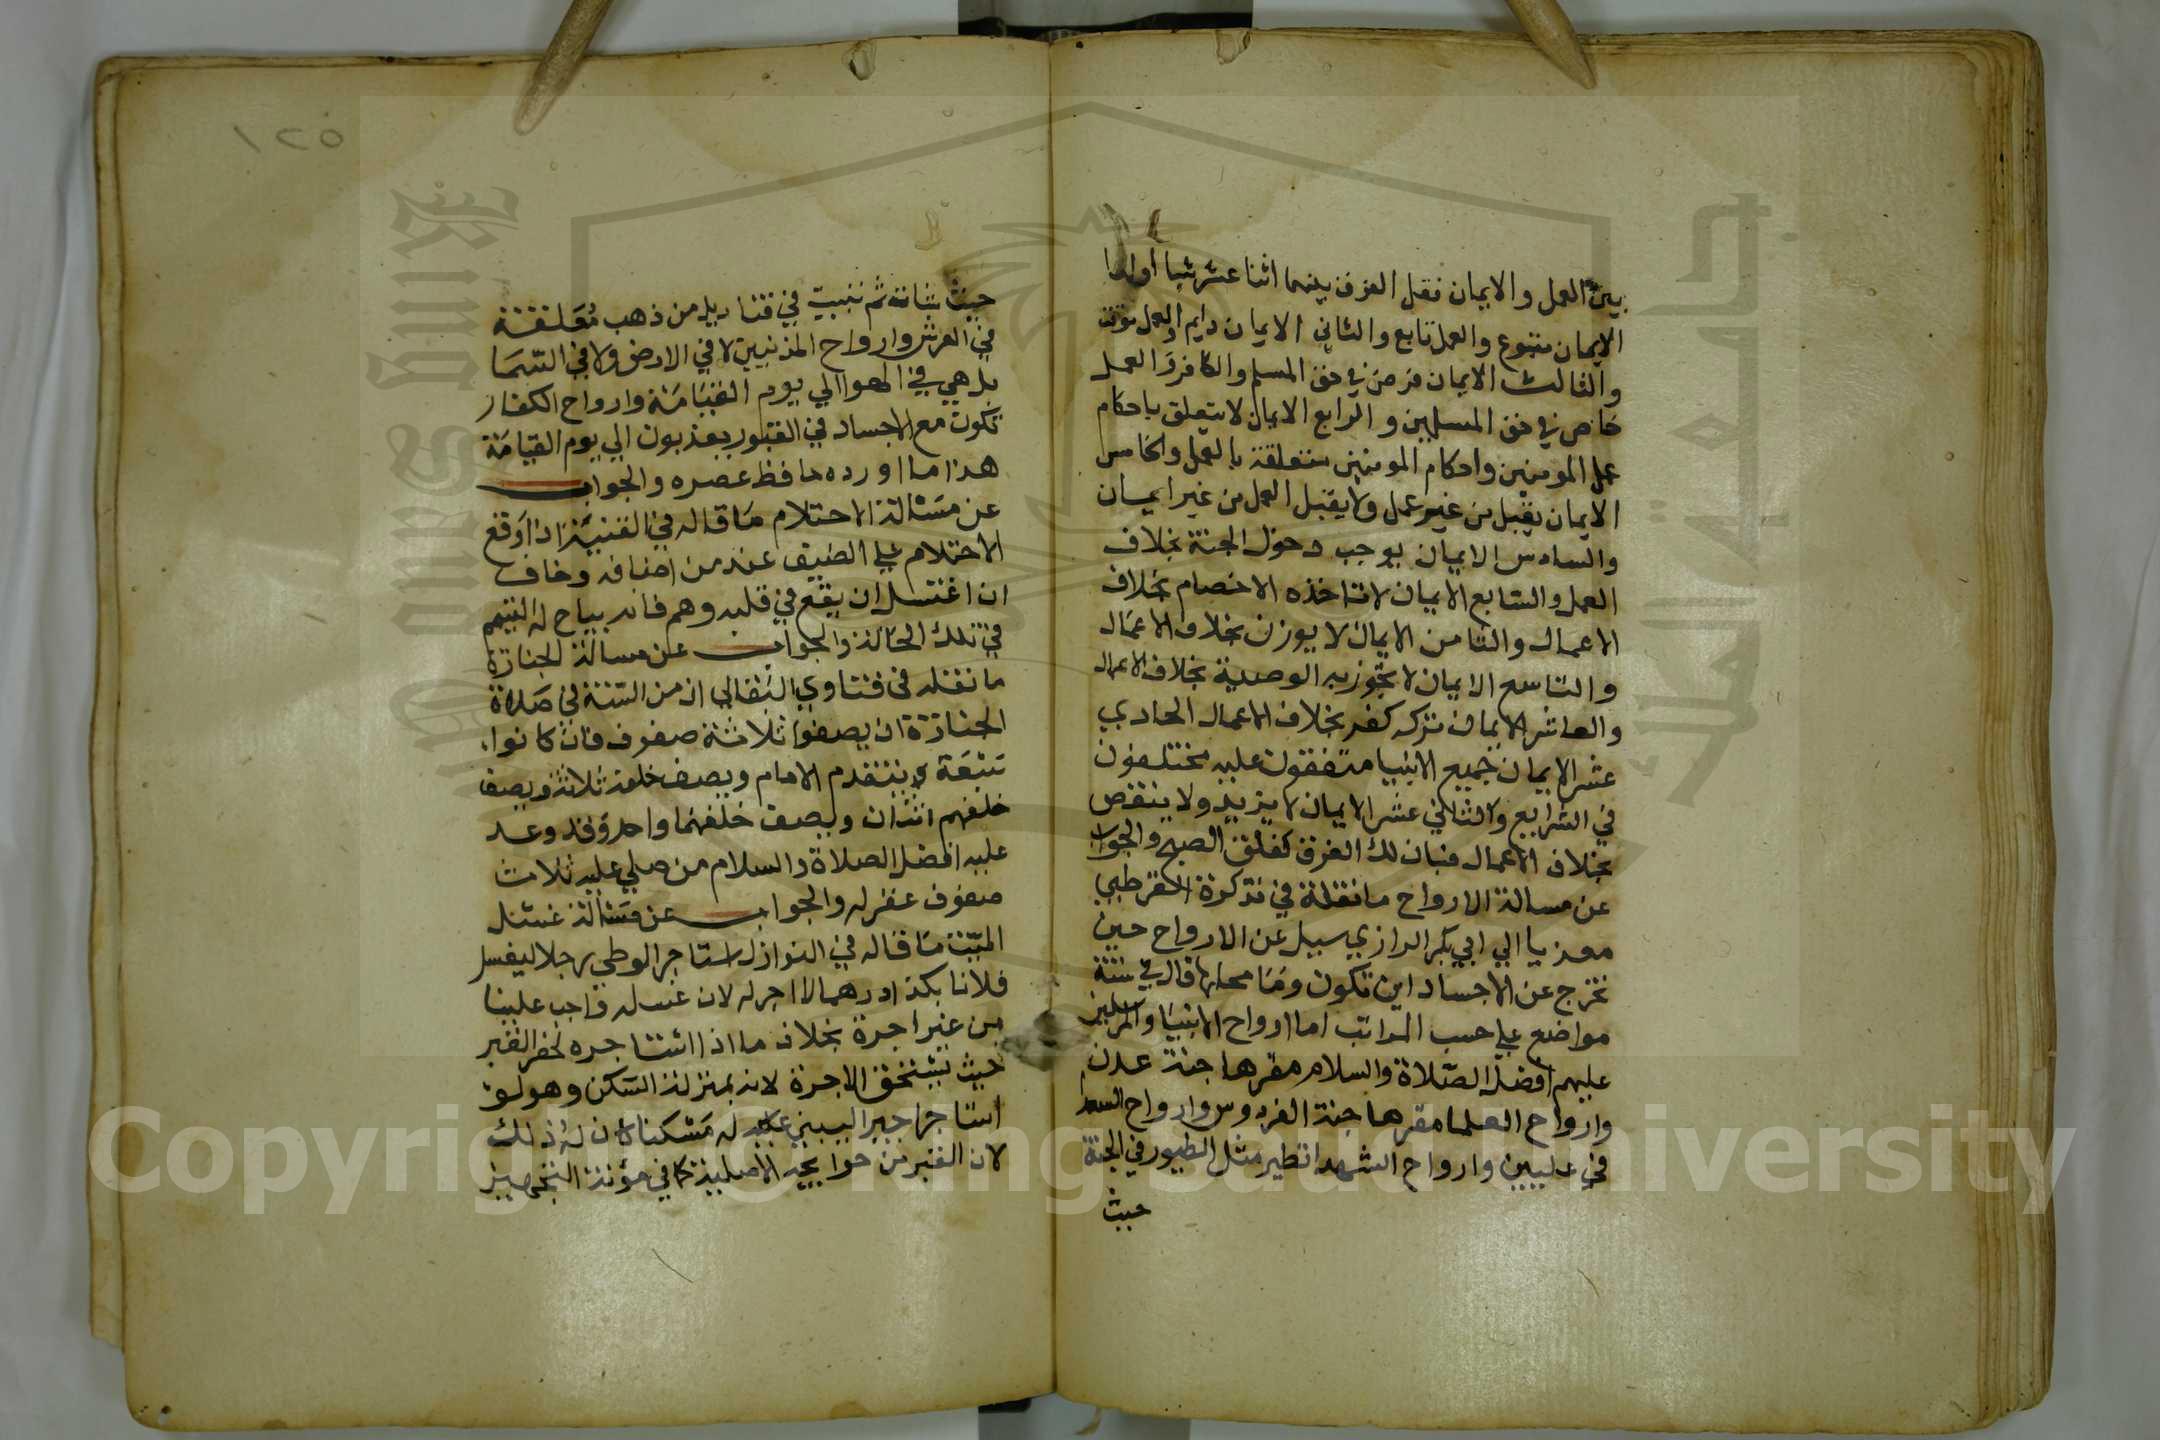 بين العمل والايمان نقل الفرق بينهما اثنا عشر شيا اولها
الايمان متبوع والعمل تابع والثاني الايمان دايم والعمل موقت
والثالث الايمان فرض في حق المسلم والكافر والعمل
خاص في حق المسلمين والرابع الايمان لا يتعلق باحكام
عمل المومنين واحكام المومنين متعلقة بالعمل والخامس
الايمان يقبل من غير عمل ولا يقبل العمل من غير ايمان
والسادس الايمان يوجب دخول الجنة بخلاف
العمل والسابع الايمان لا تاخذه الاخصام بخلاف
الاعمال والثامن الايمان لا يوزن بخلاف الاعمال
والتاسع الايمان لا تجوز به الوصية بخلاف الاعمال
والعاشر الايمان تركه كفر بخلاف الاعمال الحادي
عشر الايمان جميع الانبيا متفقون عليه مختلفون
في الشرايع والثاني عشر الايمان لا يزيد ولا ينقص
بخلاف الاعمال فبان لك الفرق كفلق الصبح والجواب
عن مسالة الارواح ما نقله في تذكرة القرطبي
معزيا الي ابي بكر الرازي سيل عن الارواح حين
تخرج عن الاجساد اين تكون وما محلها قال في ستة
مواضع علي حسب المراتب اما ارواح الانبيا والمرسلين
عليهم افضل الصلاة والسلام مقرها جنة عدن
وارواح العلما مقرها جنة الفردوس وارواح السعدا
في عليين وارواح الشهدا تطير مثل الطيور في الجنة
حيث
١٢٥
حيث شات ثم تبيت في قناديل من ذهب معلقة
في العرش وارواح المذنبين لا في الارض ولا في السما
بل هي في الهوا الي يوم القيامة وارواح الكفار
تكون مع الاجساد في القبور يعذبون الي يوم القيامة
هذا ما اورده حافظ عصره والجواب
عن مسالة الاحتلام ما قاله في القنية اذا وقع
الاحتلام علي الضيف عند من اضافه وخاف
ان اغتسل ان يقع في قلبه وهم فانه يباح له التيمم
في تلك الحالة والجواب عن مسالة الجنازة
ما نقله في فتاوي البقالي ان من السنة في صلاة
الجنازة ان يصفوا ثلاثة صفوف فان كانوا
سبعة يتقدم الامام ويصف خلفه ثلاثة ويصف
خلفهم اثنان ويصف خلفهما واحد وقد وعد
عليه افضل الصلاة والسلام من صلي عليه ثلاث
صفوف غفر له والجواب عن مسالة غسل
الميت ما قاله في النوازل استاجر الوصي رجلا ليغسل
فلانا بكذا درهما لا اجر له لان غسله واجب علينا
من غير اجرة بخلاف ما اذا استاجره لحفر القبر
حيث يستحق الاجرة لانه بمنزلة السكن وهو لو
استاجر اجيرا ليبني له مسكنا كان له ذلك
لان القبر من حوايجه الاصلية كما في مؤنة التجهيز
Copyright © King Saud University
King Saud University
جامعة الملك